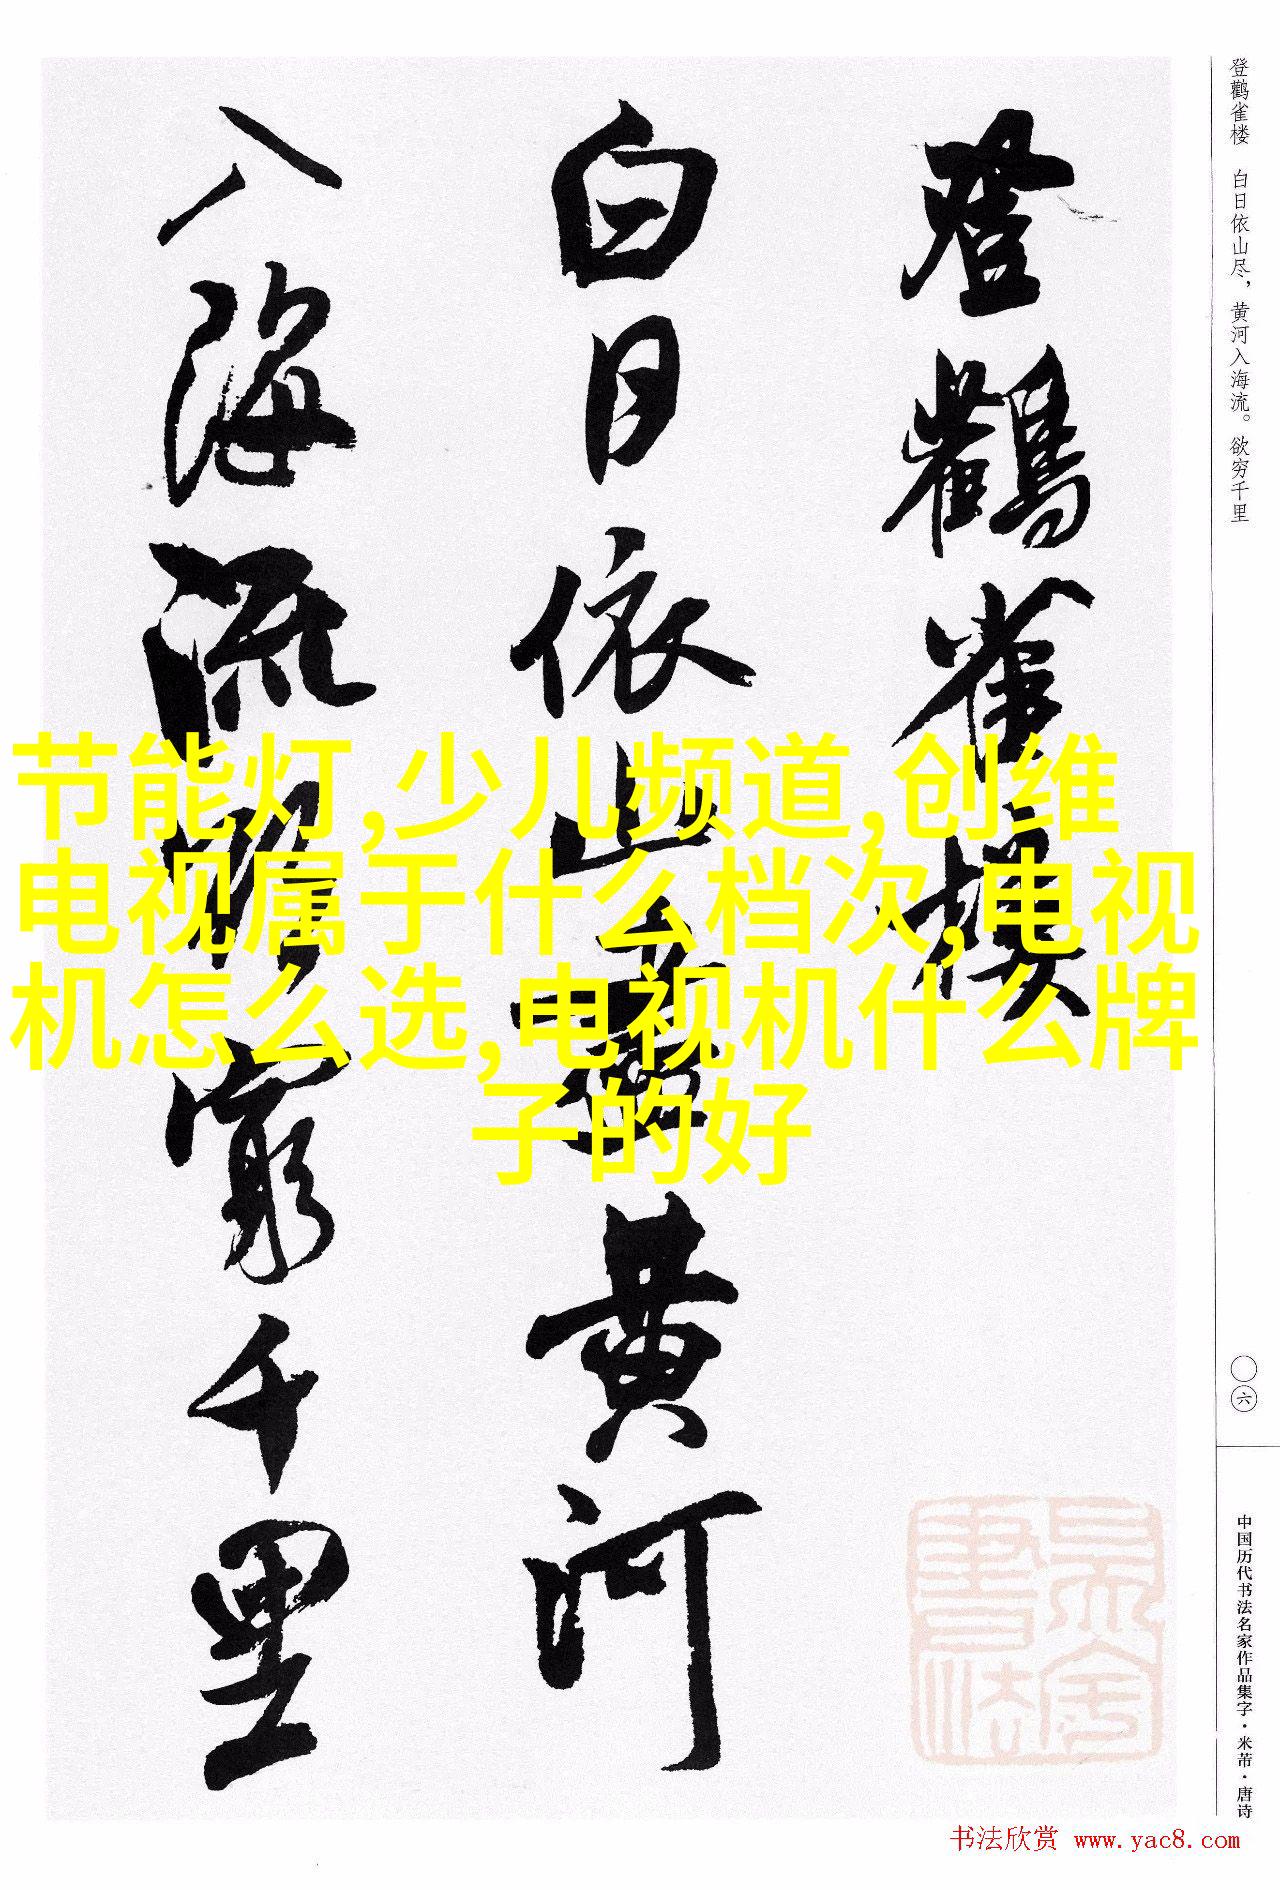 登鹳雀楼 白日依山尽，黄河入海流。欲穷千里
登鸛雀樓
白日依山盡黄河
入海流欲窮千里
节能灯,少儿频道,创维
电视属于什么档次,电视
机怎么选,电视机什么牌
子的好
〇六
中国历代书法名家作品集字·米芾·唐诗
书法欣赏 www.yac8.com